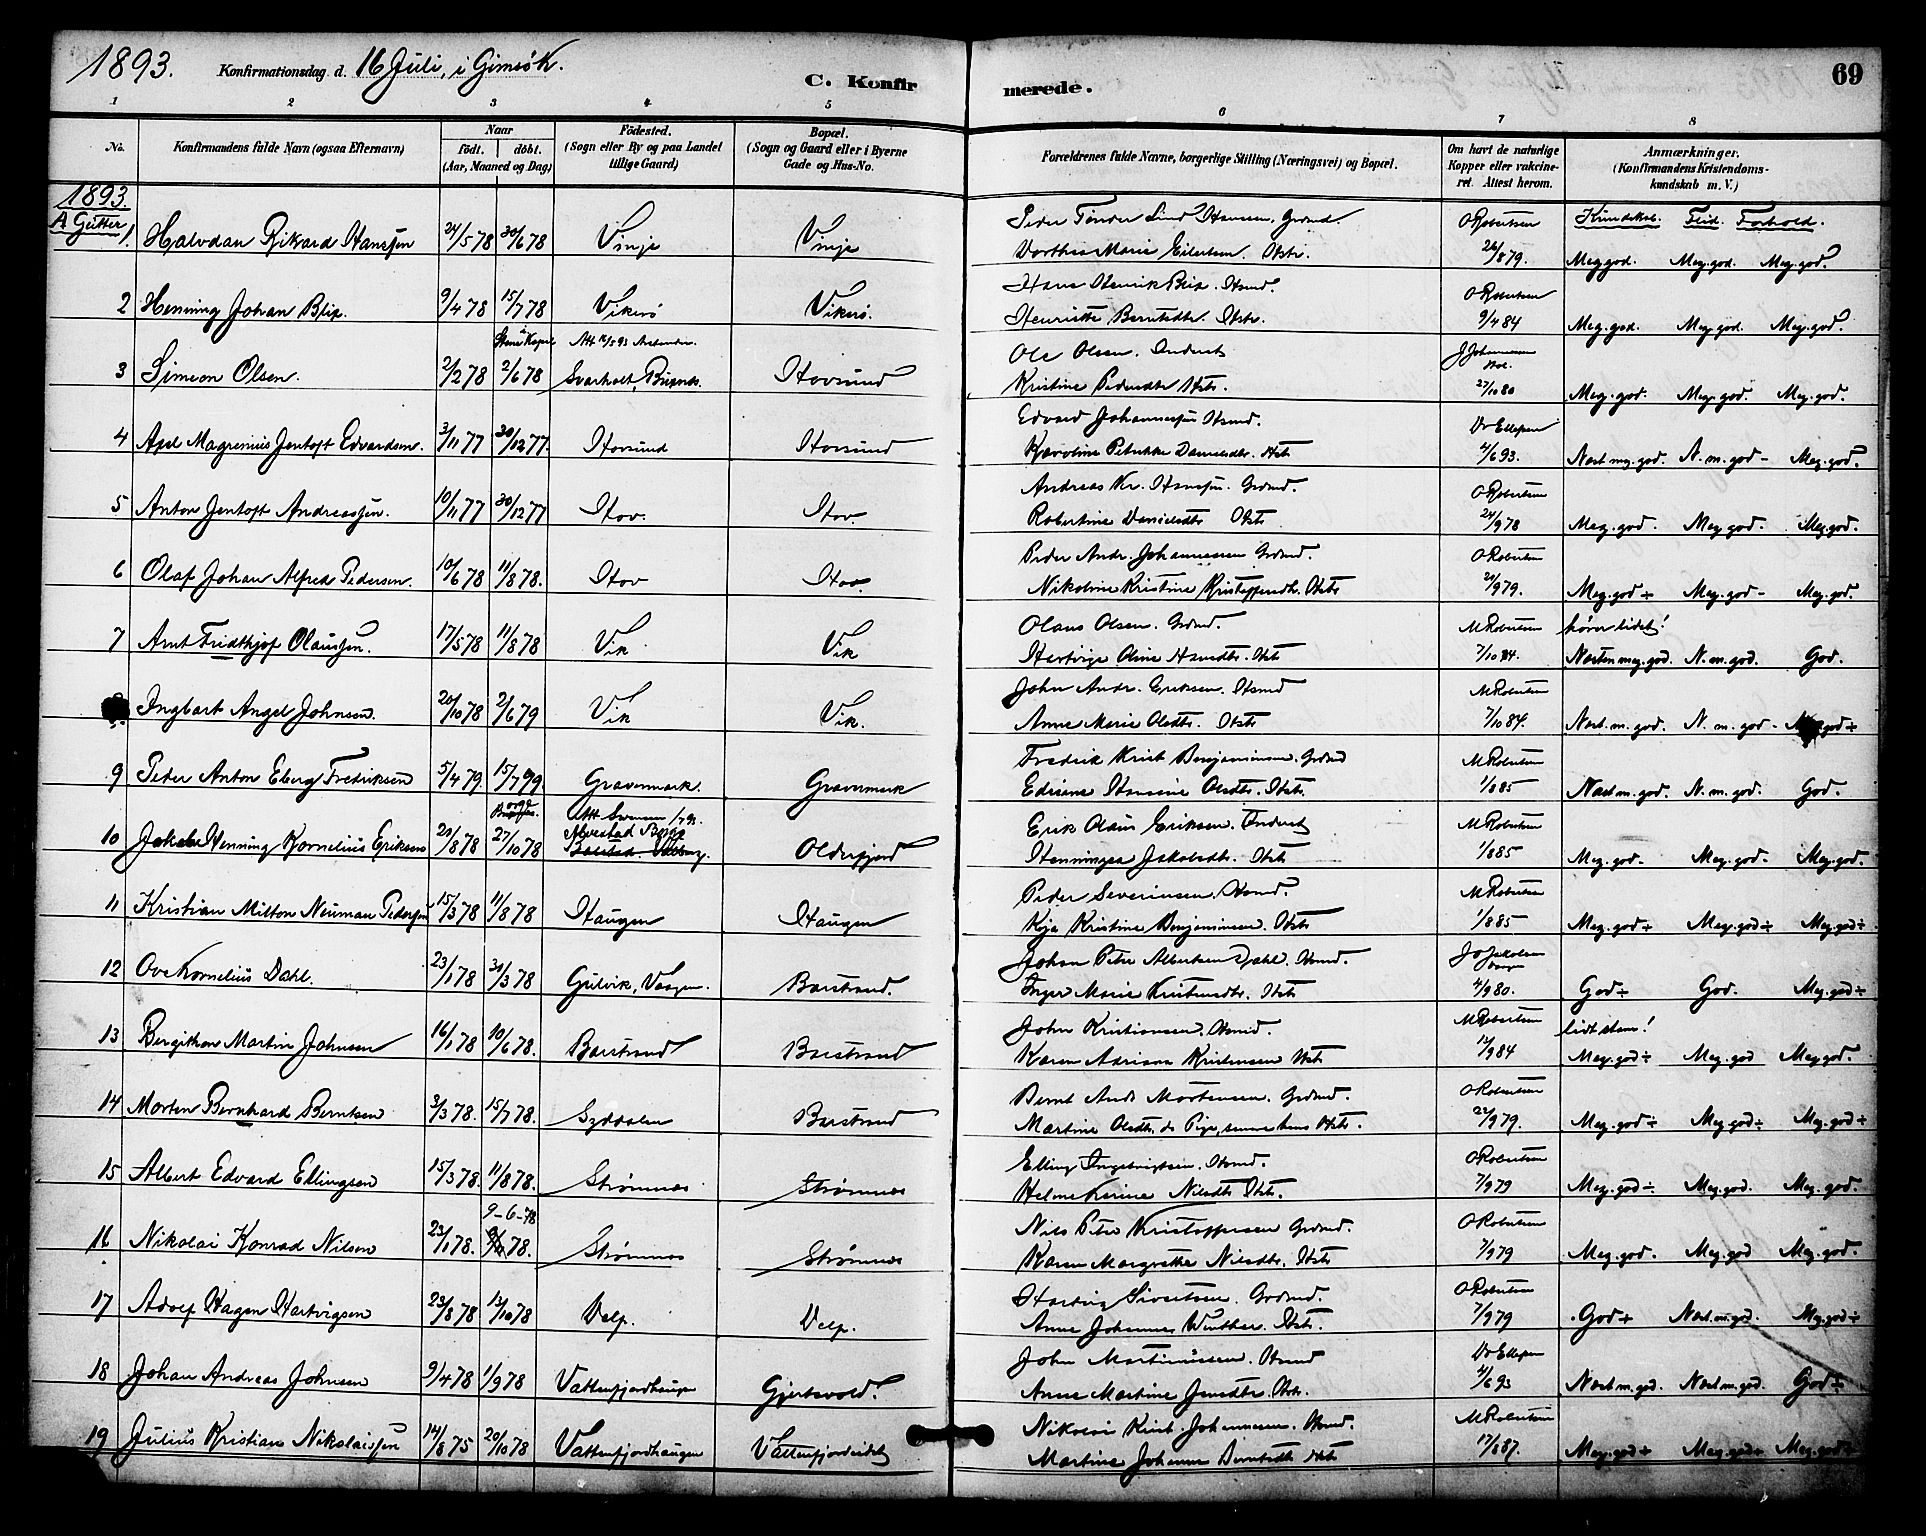 1893. Konfirmationsdag d. 16 Juli, i Gimsøk.
C. Konfirmerede.
69
1 2 3 4 5 6 7 8
No. Konfirmandens fulde Navn (ogsaa Efternavn) Naar födt. döbt. (Aar, Maaned og Dag) Födested. (Sogn eller By og paa Landet tillige Gaard) Bopæl. (Sogn og Gaard eller i Byerne Gade og Hus-No. Forældrenes fulde Navne, borgerlige Stilling (Næringsvei) og Bopæl. Om havt de naturlige Kopper eller vakcineret. Attest herom. Anmærkninger. (Konfirmandens Kristendomskundskab m. V.)
1893.
A Gutter
Peder Tønder Lind Hanssen. Grdmd. O Robertsen Kundskab. Flid. Forhold.
1 Halvdan Rikard Hanssen 24/5 78 30/6 78 Vinje Vinje Dorthea Marie Eilertsen. Hstr. 26/8 79. Meg god. Meg. god. Meg. god.
Hans Henrik Blix. Hsmd. O Robertsen
2 Henning Johan Blix. 9/4 78 15/7 78 Vikerö Vikerö. Henriette Berntsdtr. Hstr. 9/4 84 Meg. god. Meg god. Meg. god.
Ole Olsen. Inderst J Johannessen
3 Simeon Olsen. 2/2 78 2/6 78 Svarholt, Hovsund Kristine Pedersdtr Hstr. 27/10 80 Meg. god. Meg. god. Meg. god.
Edvard Johannessen Hsmd. Dr Ellefsen
4 Axel Magrenius Jentoft Edvardsen. 3/11 77 30/12 77. Hovsund Hovsund Karoline Petrikke Danielsdtr. Hstr 4/6 93. Næst mg. god. N. m. god - Meg. god.
Andreas Kr. Hanssen. Grdmd. O Robertsen
5 Anton Jentoft Andreassen. 10/11 77 30/12 77 Hov. Hov. Robertine Danielsdtr Hstr 24/9 78 Meg. god. Meg god. Meg. god.
Peder Andr. Johannessen Grdmd. O Robertsen
6 Olaf Johan Alfred Pedersen. 10/6 78 11/8 78. Hov Hov. Nikoline Kristine Kristoffersdtr. Hstr 20/9 79. Meg. god ÷ Meg. god - Meg. god.
Olaus Olsen. Grdmd. M Robertsen hører lidet!
7 Arnt Fredthjof Olaussen. 17/5 78 11/8 78 Vik Vik Hartvige Oline Hansdtr. Hstr 7/10 84. Næsten meg. god. N. m. god. God.
John Andr. Eriksen. Hsmd M Robertsen
Ingbart Angel Johnsen. 20/10 78 2/6 79 Vik Vik. Anne Marie Olsdtr. Hstr 7/10 84. Næst. m. god. N. m. god - god ÷
Fredrik Krist Benjaminsen. Grdmd M Robertsen
9 Peder Anton Eberg Fredriksen 5/4 79. 15/7 99 Gravermark. Gravermark Hansine Olsdtr. Hstr. 1/8 85 Næst m. god. N. m. god. God.
Erik Olaus Eriksen. Inderst M Robertsen
10 Jakob Henning Kornelius Eriksen 20/8 78 27/10 78 Oldersfjord Henningea Jakobsdtr. Hstr 1/8 85 Meg. god. Meg. god. Meg. god.
Peder Severinsen. Hsmd. M Robertsen
11 Kristian Milton Neuman Pedersen 15/3 78 11/8 78 Haugen Haugen Kaja Kristine Benjaminsen. Hstr 1/8 85 Meg. god ÷ Meg. god ÷ Meg. god ÷
Johan Peter Albertsen Dahl. Hsmd.
12 Ove Kornelius Dahl. 23/1 78 31/3 78 Gulvik, Vaagen. Barstrand. Inger Marie Kristensdtr. Hstr 4/9 80. God ÷ God. Meg. god ÷
John Kristiansen. Hsmd. M Robertsen lidt sten!
13 Bergithon Martin Johnsen 16/1 78 10/6 78. Barstrand Barstrand Karen Adriana Kristensen Hstr 12/9 84 Meg. god ÷ Meg. god Meg god.
Bernt Andr Mortensen. Grdmd. O Robertsen
14 Morten Bernhard Berntsen 3/3 78. 15/7 78. Syddalen Barstrand Martine Olsdtr, ds Pige, senere hans Hstr. 22/9 79. Meg. god ÷ Meg. god ÷ Meg. god ÷
Elling Ingebrigtsen. Hsmd. O Robertsen
15 Albert Edvard Ellingsen 15/3 78. 11/8 78. Strømnes Strømnes Helmekarine Nilsdtr. Hstr. 7/9 79 Meg. god ÷ Meg. god. Meg. god.
9-6-78 Nils Peter Kristoffersen Grdmd. O Robertsen
16 Nikolai Konrad Nilsen 23/1 78. 78. Strømnes Strømnes Karen Margrethe Nilsdtr. Hstr 7/9 79 Meg. god. Meg. god Meg. god.
Hartvig Sivertsen. Grdmd. O Robertsen
17 Adolf Hagen Hartvigsen 23/8 78 13/10 78 Delp. Delp. Anne Johannes Winther. Hstr. 7/9 79 God + Næst. m. god. Meg. god ÷
John Martinussen. Hsmd Dr Ellefsen
18 Johan Andreas Johnsen 9/4 78 1/9 78 Vattenfjordhaugen Gjertsvold. Anne Martine Jensdtr. Hstr. 4/6 93 Næst m. god. Næst. m. god. God ÷
Nikolai Krist Johannessen. Hsmd. M Robertsen
19 Julius Kristian Nikolaissen 14/8 75 20/10 78 Vattenfjordhaugen Vattenfjordeidet Martine Johanna Berntsdtr Hstr 17/8 87. Meg. god + Meg. god + Meg. god +